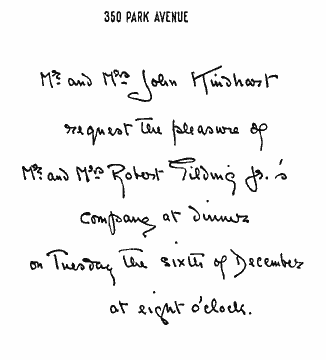 350 PARK AVENUE
Mr. and Mrs. John Kindhart
request the pleasure of
Mr. and Mrs. Robert Gilding Jr.'s
company at dinner
on Tuesday the sixth of December
at eight o'clock.